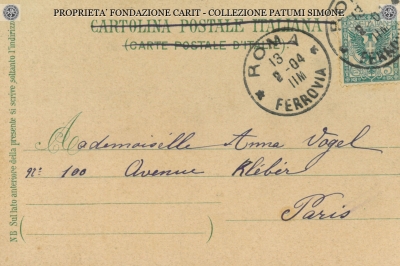 PROPRIETA' FONDAZIONE CARIT - COLLEZIONE PATUMI SIMONE
CARTOLINA POSTALE ITALIANA
(CARTE POSTALE D'ITALIE)
ROMA
13
2-04
11M
FERROVIA
RO
13
2-04
11M
FERRO
Mademoiselle Anna Vogel
No. 100 Avenue Kléber
Paris
NB Sul lato anteriore della presente si scrive soltanto l'indirizzo